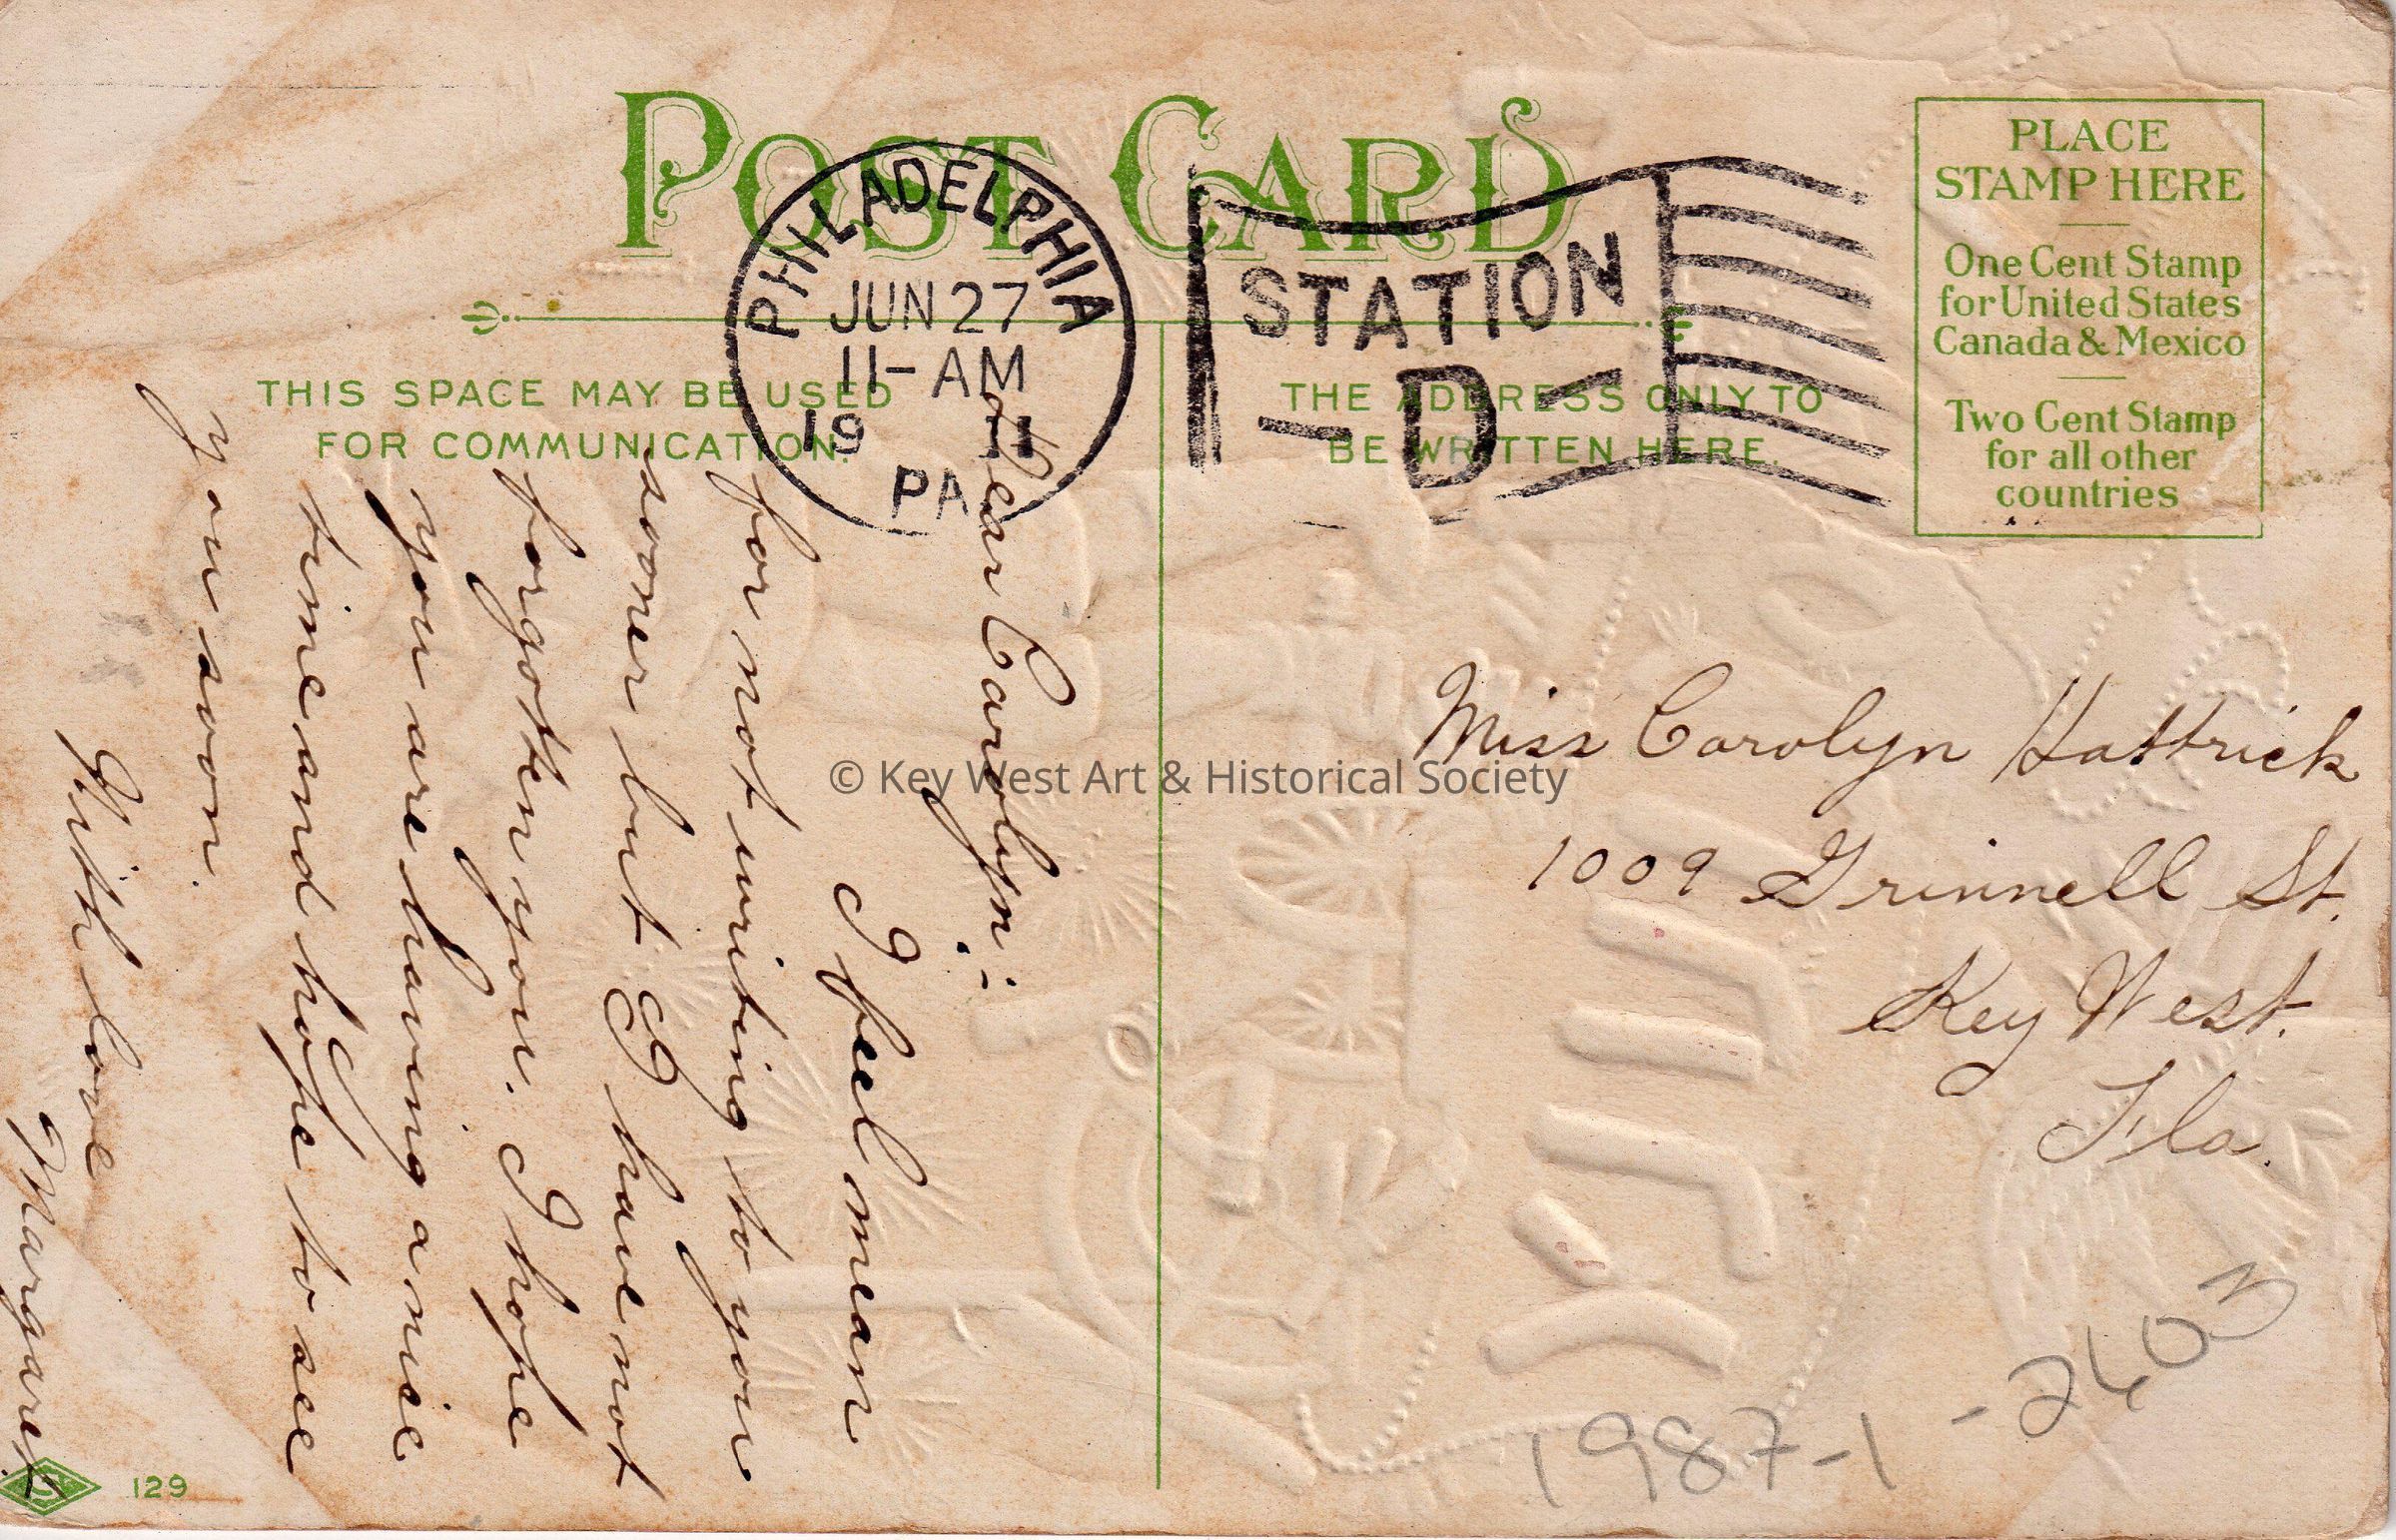 POST CARD
PHILADELPHIA
JUN 27
11-AM
19 11
PA
STATION
-D-
PLACE
STAMP HERE
One Cent Stamp
for United States
Canada & Mexico
Two Cent Stamp
for all other
countries
THIS SPACE MAY BE USED
FOR COMMUNICATION.
THE ADDRESS ONLY TO
BE WRITTEN HERE.
Dear Carolyn:-
I feel mean
for not writing to you
sooner but I have not
forgotten you. I hope
you are having a nice
time and hope to see
you soon.
With love
Margaret
Miss Carolyn Hattrick
1009 Grinnell St.
Key West.
Fla.
© Key West Art & Historical Society
1987-1-2603
129